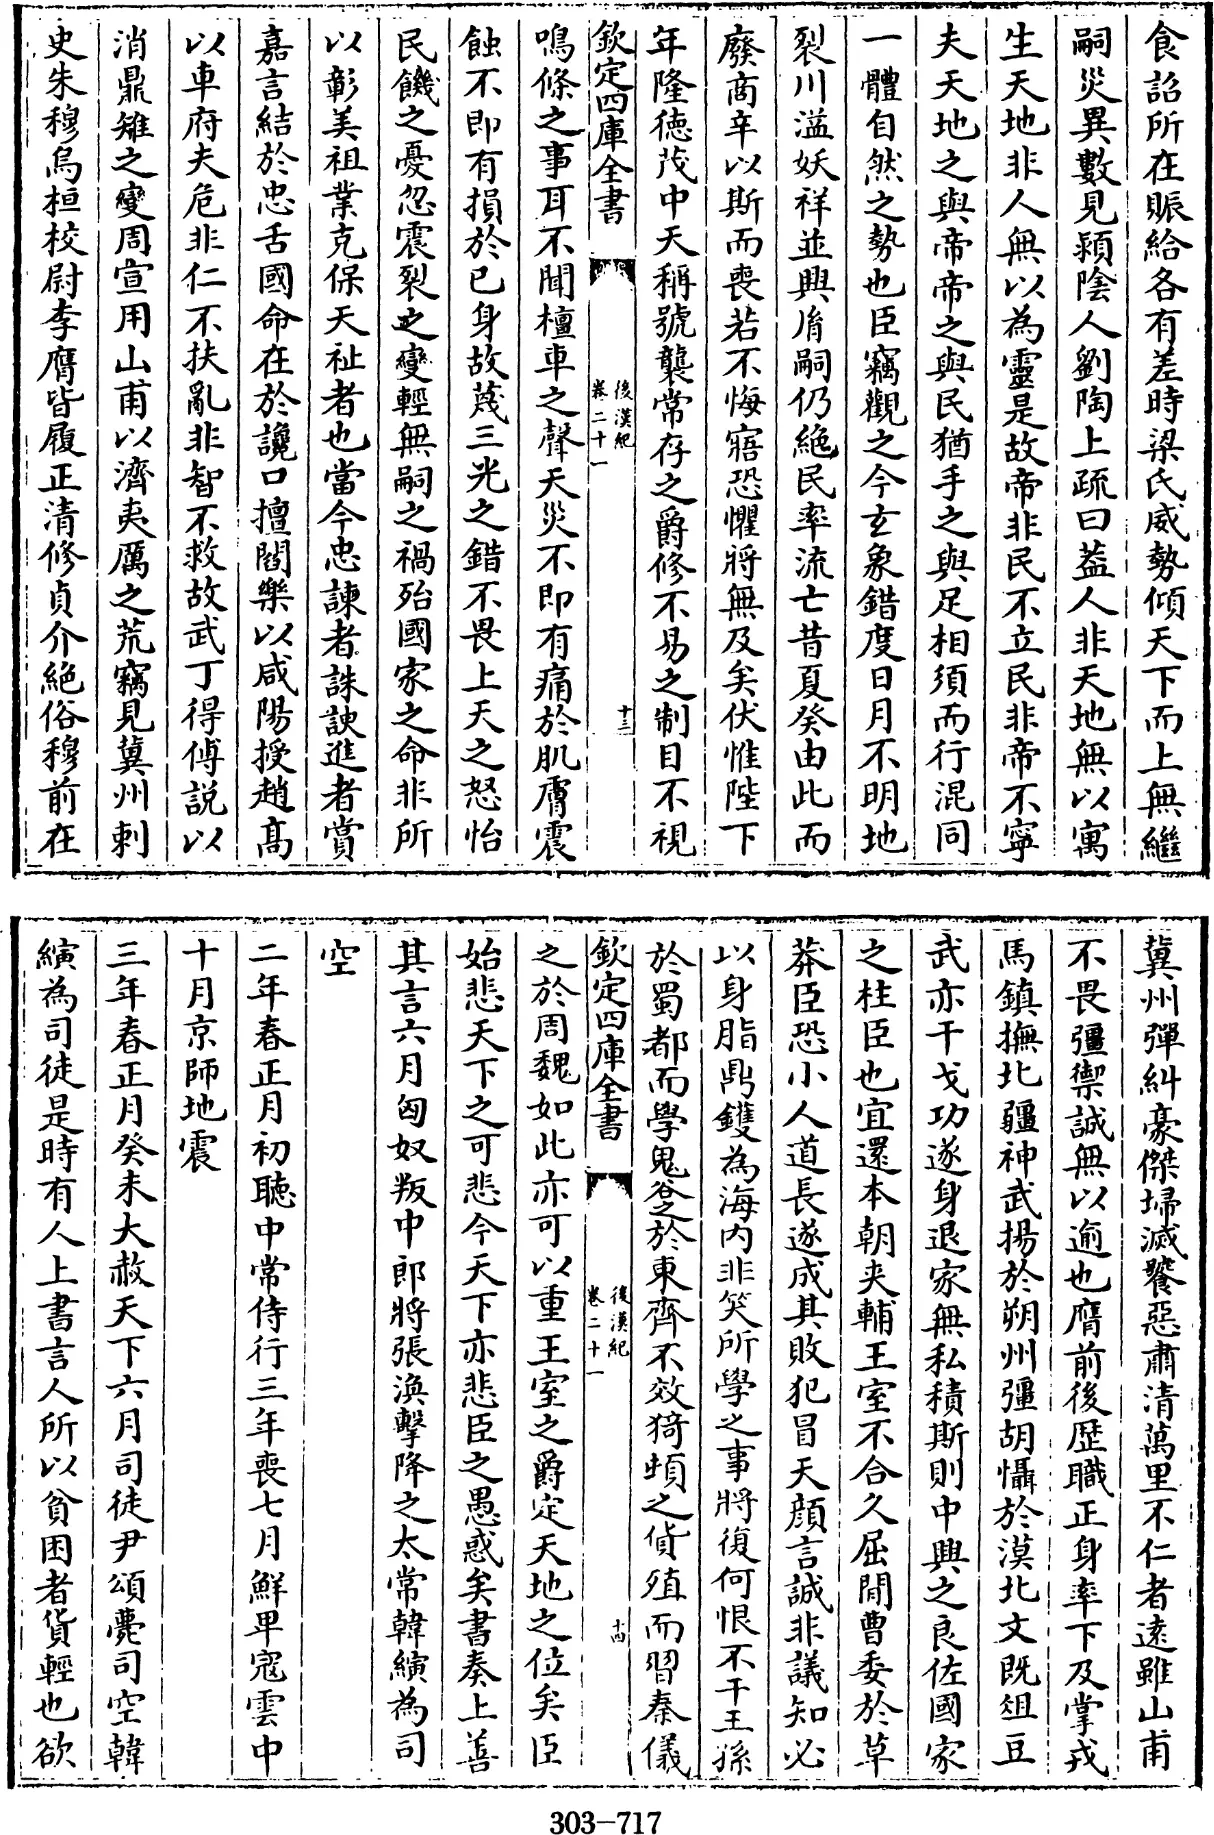 食詔所在賑給各有差時梁氏威勢傾天下而上無繼
嗣災異數見潁陰人劉陶上疏曰葢人非天地無以寓
生天地非人無以為靈是故帝非民不立民非帝不寧
夫天地之與帝帝之與民猶手之與足相須而行混同
一體自然之勢也臣竊觀之今玄象錯度日月不明地
裂川溢妖祥並興胤嗣仍絶民率流亡昔夏癸由此而
廢商辛以斯而喪若不悔寤恐懼將無及矣伏惟陛下
年隆德茂中天稱號襲常存之爵修不易之制目不視
欽定四庫全書
後漢紀
卷二十一
十三
鳴條之事耳不聞檀車之聲天災不即有痛於肌膚震
蝕不即有損於已身故蔑三光之錯不畏上天之怒怡
民饑之憂忽震裂之變輕無嗣之禍殆國家之命非所
以彰美祖業克保天祉者也當今忠諫者誅諛進者賞
嘉言結於忠舌國命在於讒口擅閻樂以咸陽授趙高
以車府夫危非仁不扶亂非智不救故武丁得傅説以
消鼎雉之變周宣用山甫以濟夷厲之荒竊見冀州刺
史朱穆烏桓校尉李膺皆履正清修貞介絶俗穆前在
冀州彈糾豪傑埽滅饕惡肅清萬里不仁者遠雖山甫
不畏彊禦誠無以逾也膺前後歴職正身率下及掌戎
馬鎮撫北疆神武揚於朔州彊胡懾於漠北文既俎豆
武亦干戈功遂身退家無私積斯則中興之良佐國家
之柱臣也宜還本朝夾輔王室不合久屈閒曹委於草
莽臣恐小人道長遂成其敗犯冒天顔言誠非議知必
以身脂鼎鑊為海内非笑所學之事將復何恨不干王孫
於蜀都而學鬼谷之於東齊不效猗頓之貨殖而習秦儀
欽定四庫全書
後漢紀
卷二十一
十四
之於周魏如此亦可以重王室之爵定天地之位矣臣
始悲天下之可悲今天下亦悲臣之愚惑矣書奏上善
其言六月匈奴叛中郎將張渙擊降之太常韓縯為司
空
二年春正月初聽中常侍行三年喪七月鮮卑寇雲中
十月京師地震
三年春正月癸未大赦天下六月司徒尹頌薨司空韓
縯為司徒是時有人上書言人所以貧困者貨輕也欲
303-717